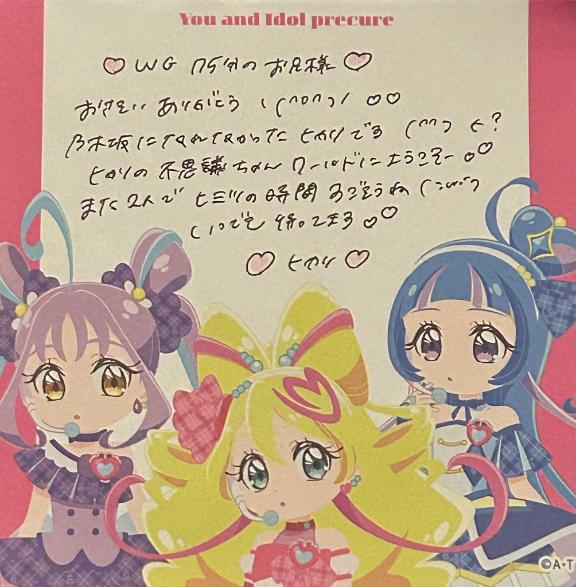 You and Idol precure
♡ WG 75分の お兄様 ♡
おさそい ありがとう \(^o^)/ ♡♡
乃木坂に なれなかった ヒカリです (^^)
ヒカリの 不思議ちゃん ワールドに ようこそー ♡♡
また 2人で ヒミツの時間 すごそうね
いつでも 待ってます ♡♡
♡ ヒカリ ♡
©A-T